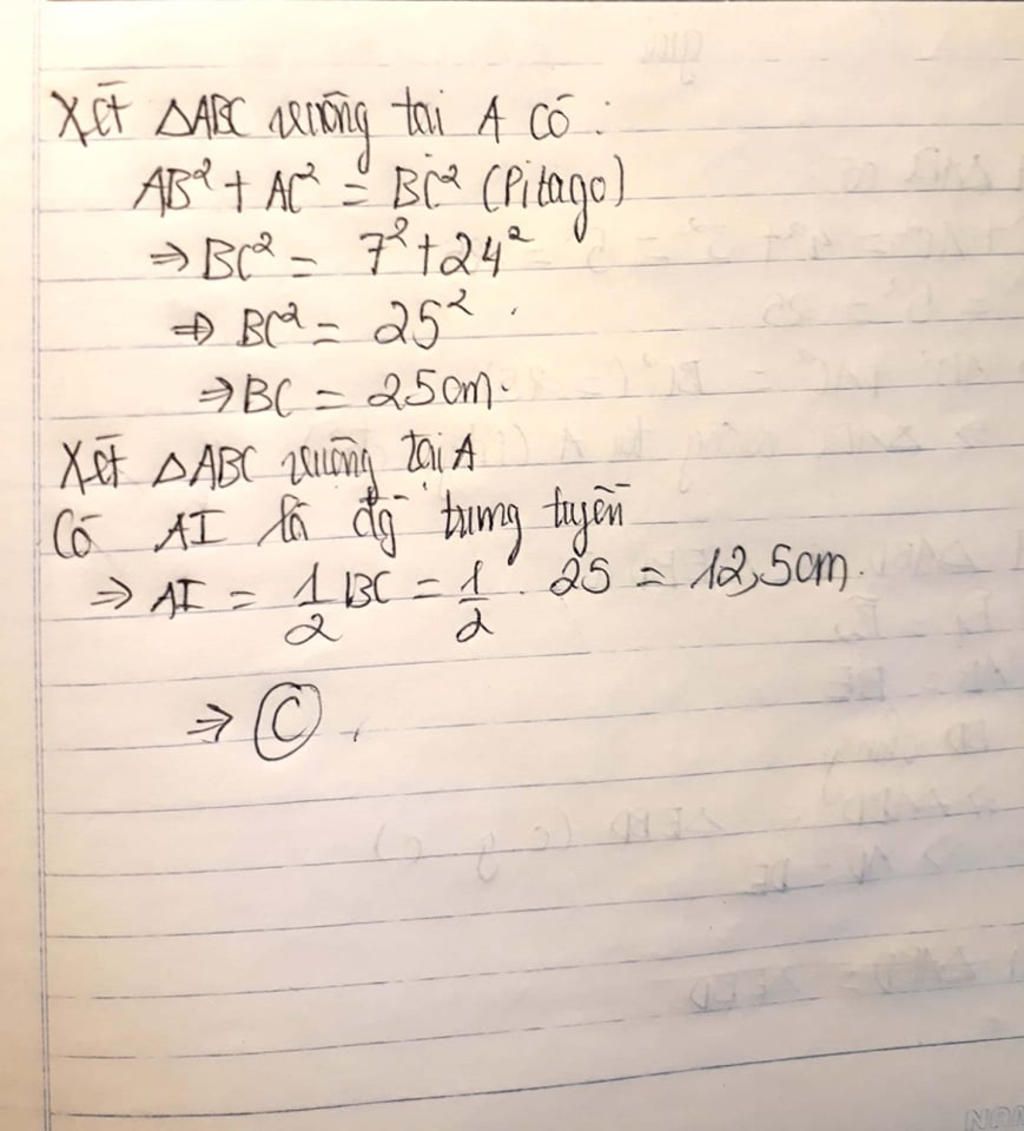 Xét ΔABC vuông tại A có :
AB² + AC² = BC² (Pitago)
⇒ BC² = 7² + 24²
⇒ BC² = 25²
⇒ BC = 25cm.
Xét ΔABC vuông tại A
Có AI là đg trung tuyến
⇒ AI = 1/2 BC = 1/2 . 25 = 12,5cm.
⇒ C .